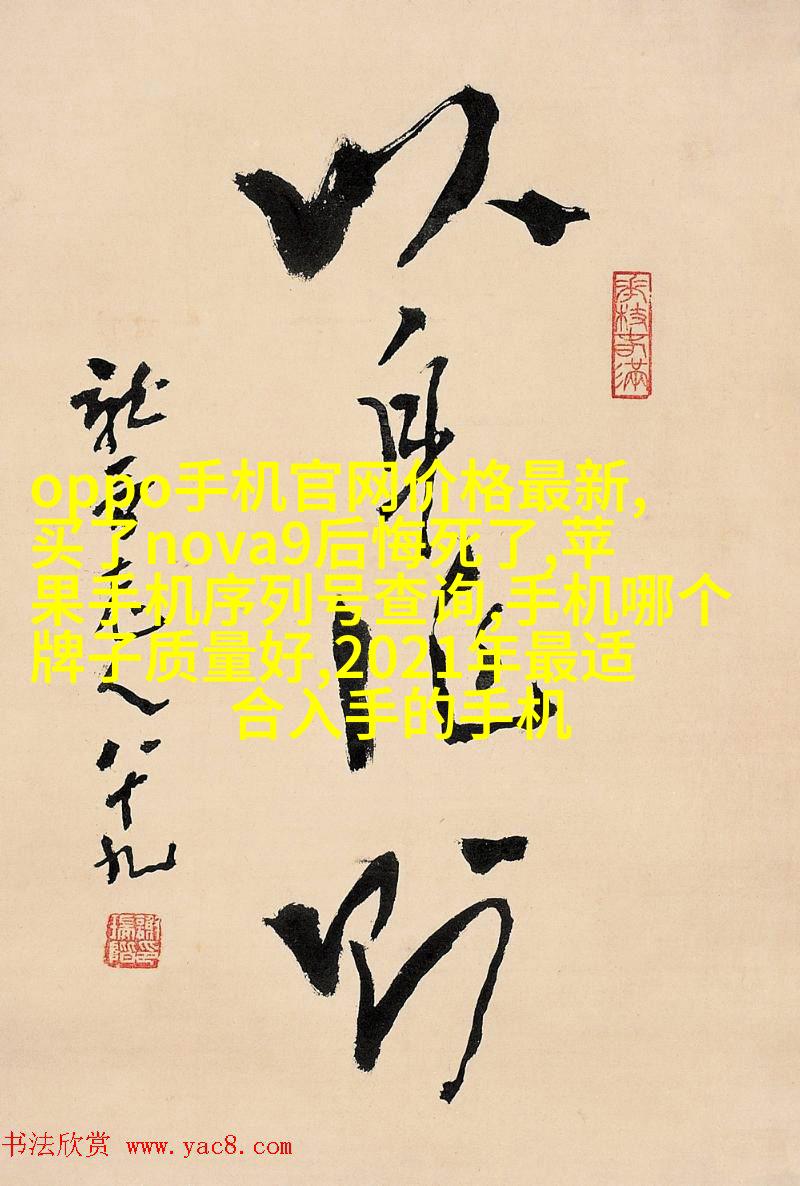 以身
oppo手机官网价格最新,
买了nova9后悔死了,苹
果手机序列号查询,手机哪个
牌子质量好,2021年最适
合入手的手机
老人八十九
书法欣赏 www.yac8.com